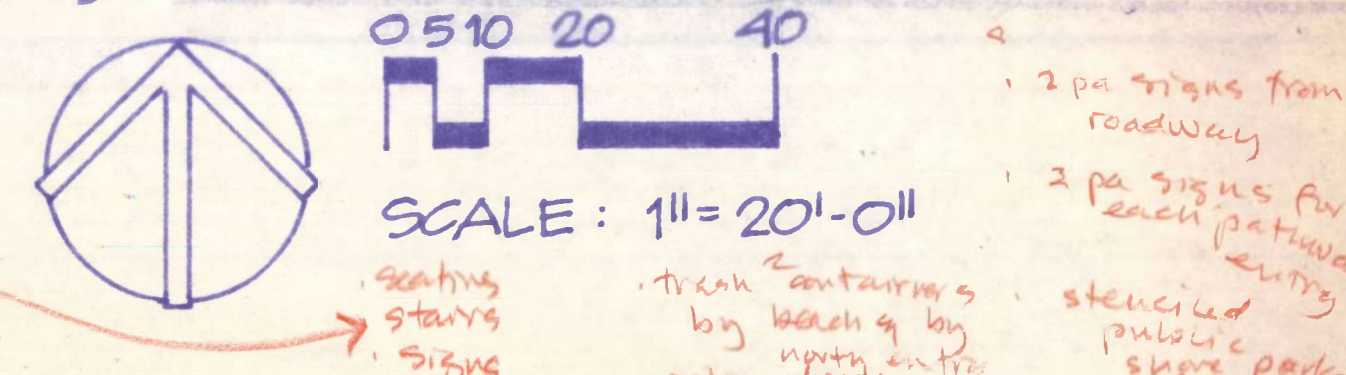 0 5 10 20 40
SCALE : 1" = 20'-0"
· seating
stairs
· signs
· trash containers
by beach & by
north
· 2 pa signs from
roadway
· 2 pa signs for
each
entry
· stenciled
public
shore